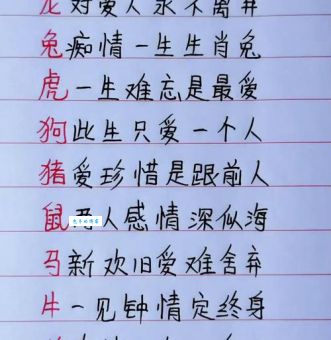 龙对爱人永不离弃
兔痴情一生生肖兔
虎一生难忘是最爱
狗此生只爱一个人
猪爱珍惜是跟前人
鼠 人感情深似海
马新欢旧爱难舍弃
牛一见钟情定终身